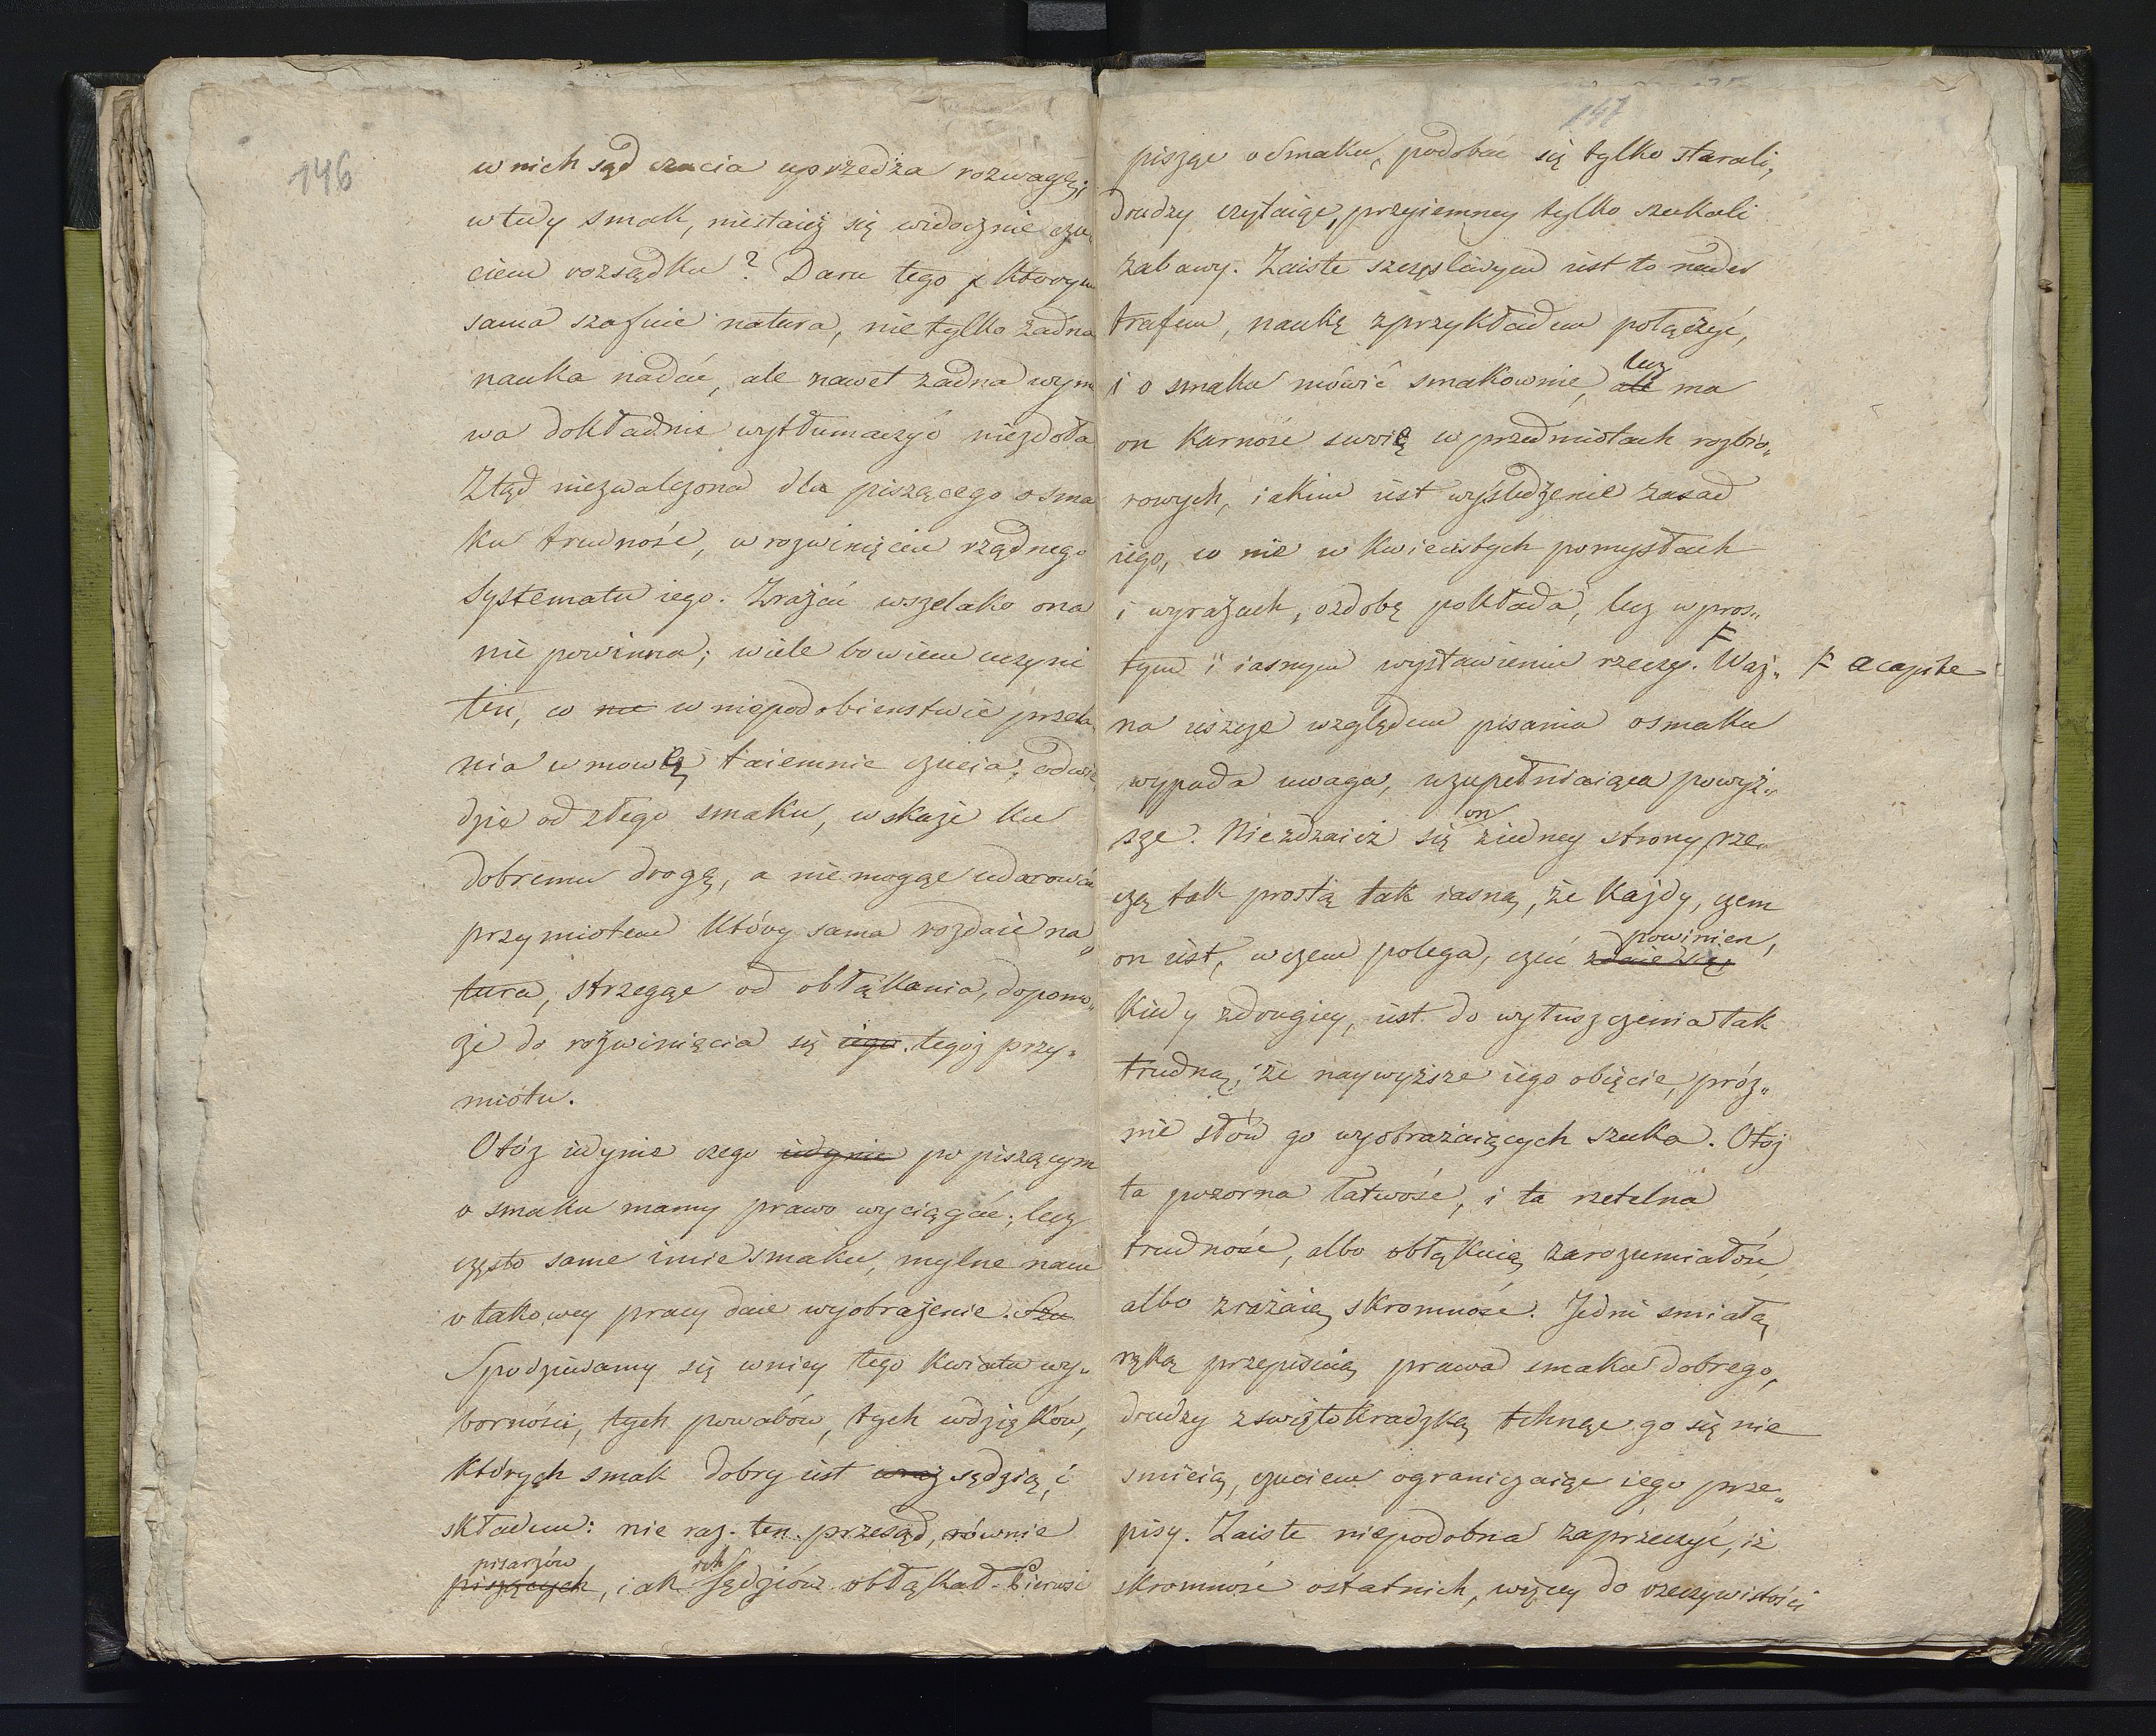 146
w nich sąd czucia uprzedza rozwagę;
wtedy smak, niestaież się widocznie czu„
ciem rozsądku? Daru tego którym
sama szafuie natura, nie tylko żadna
nauka nadać, ale nawet żadna wym
wa dokładnie wytłumaczyć niezdoła
Ztąd niezwalczona dla piszącego o sma
ku trudność, w rozwinięciu rządnego
systematu iego. Zrażać wszelako ona
nie powinna; wiele bowiem uczyni
ten, co nie w niepodobieństwie przela„
nia w mowę taiemnic czucia, odwie„
dzie od złego smaku, wskaże ku
dobremu drogę, a nie mogąc udarować
przymiotem który sama rozdaie na„
tura, strzegąc od obłąkania, dopomo„
że do rozwinięcia się iego tegoż przy„
miotu.
Otóż iedynie czego iedynie po piszącym
o smaku mamy prawo wyciągać; lecz
często same imie smaku, mylne nam
o takowey pracy daie wyobrażenie. Szu
Spodziewamy się w niey tego kwiatu wy„
borności, tych powabów, tych wdzięków,
których smak dobry iest sędzią, i
składem: nie raz ten przesąd, równie
pisarzów
piszących, iak ich sędziów obłąkał. Pierwsi
147
pisząc o smaku, podobać się tylko starali,
drudzy czytaiąc, przyiemney tylko szukali
zabawy. Zaiste szczęśliwym iest to nader
trafem, naukę z przykładem połączyć,
lecz
i o smaku mówić smakownie, ale ma
on karność swoię w przedmiotach rozbio„
rowych, iakim iest wyśledzenie zasad
iego, co nie w kwiecistych pomysłach
i wyrazach, ozdobę pokłada, lecz w pros„
tym i iasnym wystawieniu rzeczy. F Waż„
F a capite
na ieszcze względem pisania o smaku
wypada uwaga, uzupełniaiąca powyż„
on
sze. Niezdaież się z iedney strony rze„
czą tak prostą tak iasną, że każdy, czem
powinien,
on iest, w czem polega, czuć zdaie się,
kiedy z drugiey, iest do wyłuszczenia tak
trudną, że naywyższe iego obięcie, próż„
nie słów go wyobrażaiących szuka. Otóż
ta pozorna łatwość, i ta rzetelna
trudność, albo obłąkuią zarozumiałość,
albo zrażaią skromność. Jedni smiałą
ręką przepisuią prawa smaku dobrego,
drudzy z świętokradzką tchnąć go się nie
smieią, czuciem ograniczaiąc iego prze„
pisy. Zaiste niepodobna zaprzeczyć, iż
skromność ostatnich, więcey do rzeczywistości